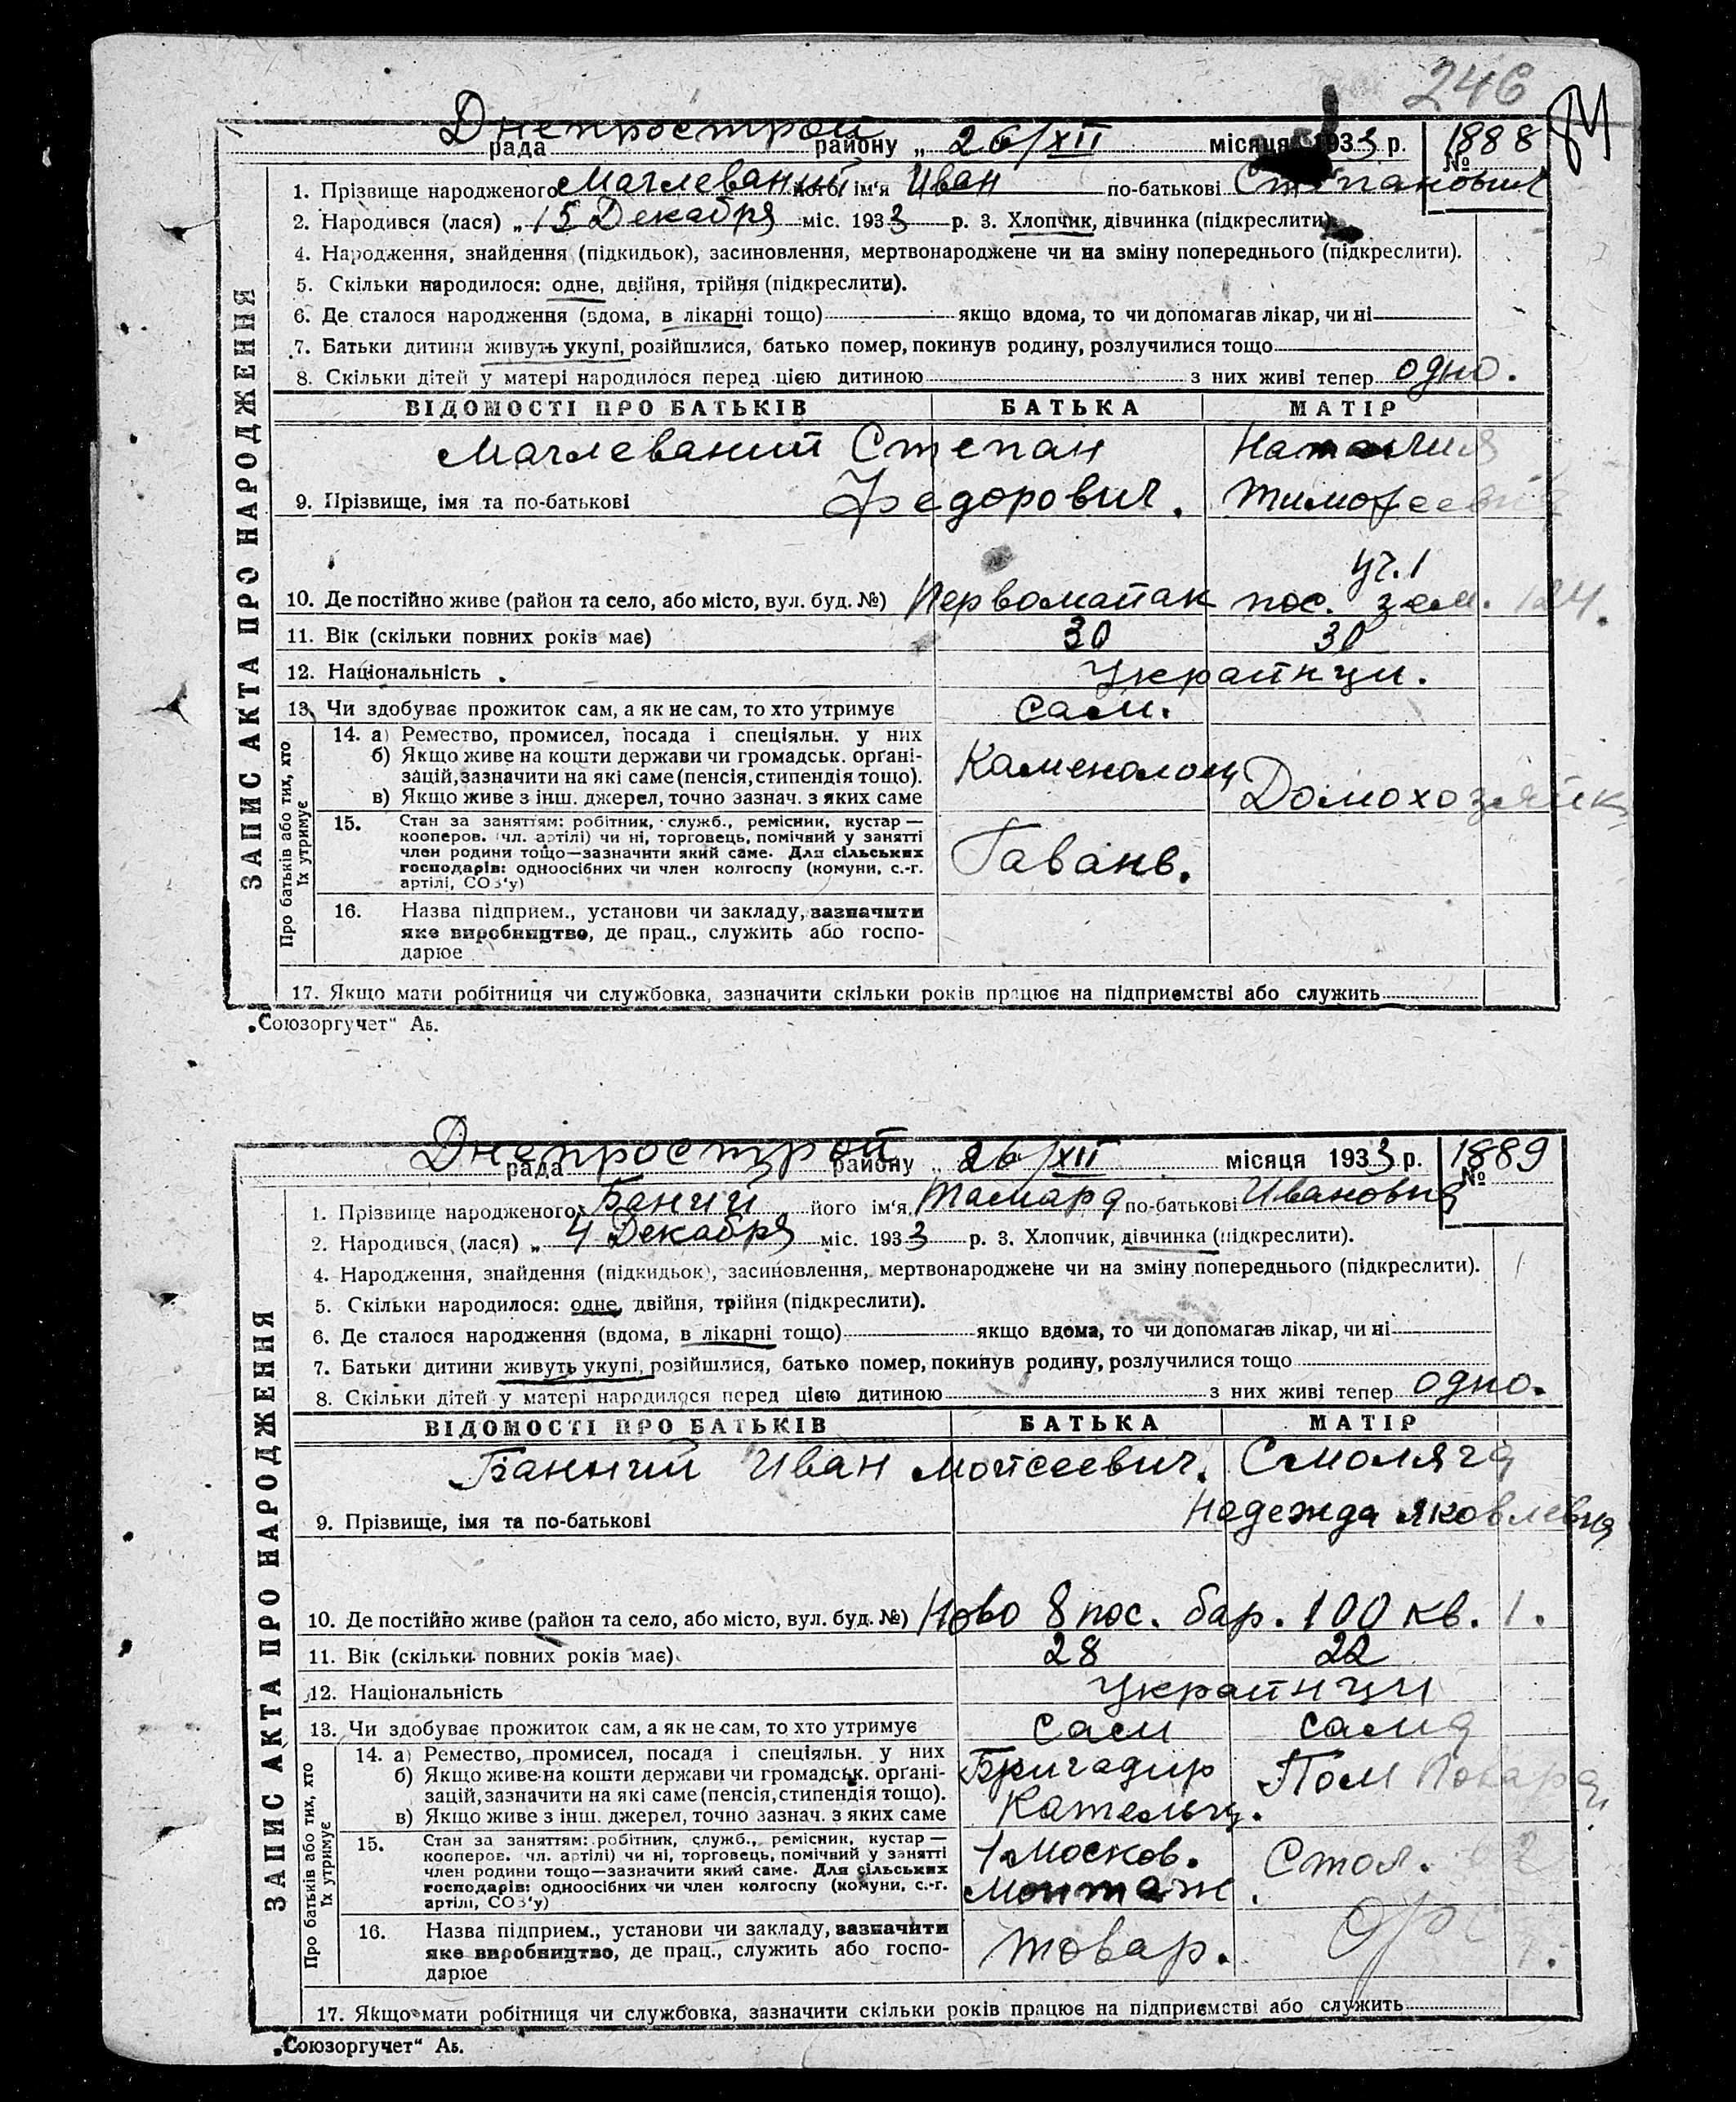 246
Днепрострой
рада району „ 26/XII місяця 1933 р. № 1888
1. Прізвище народженого Маглеваний його ім'я Иван по-батькові Степанович
2. Народився (лася) „ 15 Декабря міс. 1933 р. 3. Хлопчик, дівчинка (підкреслити)
4. Народження, знайдення (підкидьок), засиновлення, мертвонароджене чи на зміну попереднього (підкреслити).
5. Скільки народилося: одне, двійня, трійня (підкреслити).
6. Де сталося народження (вдома, в лікарні тощо) якщо вдома, то чи допомагав лікар, чи ні
7. Батьки дитини живуть укупі, розійшлися, батько помер, покинув родину, розлучилися тощо
8. Скільки дітей у матері народилося перед цією дитиною з них живі тепер одно.
ЗАПИС АКТА ПРО НАРОДЖЕННЯ
ВІДОМОСТІ ПРО БАТЬКІВ БАТЬКА МАТІР
Маглеваний Степан Наталия
9. Прізвище, імя та по-батькові Федорович. Тимофеевна
уч. 1
10. Де постійно живе (район та село, або місто, вул. буд. №) Первомайск пос. зем. 124.
11. Вік (скільки повних років має) 30 30
12. Національність Украйнци.
13. Чи здобуває прожиток сам, а як не сам, то хто утримує сам.
Про батьків або тих, хто їх утримує
14. а) Ремество, промисел, посада і спеціяльн. у них
б) Якщо живе на кошти держави чи громадськ. орґані-
зацій, зазначити на які саме (пенсія, стипендія тощо). Каменоломщ
в) Якщо живе з інш. джерел, точно зазнач. з яких саме Домохозяйк
15. Стан за заняттям: робітник, служб., ремісник, кустар —
кооперов. (чл. артілі) чи ні, торговець, помічний у занятті
член родини тощо—зазначити який саме. Для сільських Гавань.
господарів: одноосібних чи член колгоспу (комуни, с.-г.
артілі, СОЗ'у)
16. Назва підприєм., установи чи закладу, зазначити
яке виробництво, де прац., служить або госпо-
дарює
17. Якщо мати робітниця чи службовка, зазначити скільки років працює на підприємстві або служить
„Союзоргучет“ Аб.
Днепрострой
рада району „ 26/XII місяця 1933 р. № 1889
1. Прізвище народженого Баний його ім'я Тамара по-батькові Ивановна
2. Народився (лася) „ 4 Декабря міс. 1933 р. 3. Хлопчик, дівчинка (підкреслити).
4. Народження, знайдення (підкидьок), засиновлення, мертвонароджене чи на зміну попереднього (підкреслити).
5. Скільки народилося: одне, двійня, трійня (підкреслити).
6. Де сталося народження (вдома, в лікарні тощо) якщо вдома, то чи допомагав лікар, чи ні
7. Батьки дитини живуть укупі, розійшлися, батько помер, покинув родину, розлучилися тощо
8. Скільки дітей у матері народилося перед цією дитиною з них живі тепер одно.
ЗАПИС АКТА ПРО НАРОДЖЕННЯ
ВІДОМОСТІ ПРО БАТЬКІВ БАТЬКА МАТІР
Банний Иван Мойсеевич. Смоляга
9. Прізвище, імя та по-батькові Надежда Яковлевна
10. Де постійно живе (район та село, або місто, вул. буд. №) Ново 8 пос. бар. 100 кв. 1.
11. Вік (скільки повних років має) 28 22
12. Національність Украйнци
13. Чи здобуває прожиток сам, а як не сам, то хто утримує сам сама
Про батьків або тих, хто їх утримує
14. а) Ремество, промисел, посада і спеціяльн. у них Бригадир Пом Повара
б) Якщо живе на кошти держави чи громадськ. орґані-
зацій, зазначити на які саме (пенсія, стипендія тощо).
в) Якщо живе з інш. джерел, точно зазнач. з яких саме Котельщ.
15. Стан за заняттям: робітник, служб., ремісник, кустар — 1 Москов.
кооперов. (чл. артілі) чи ні, торговець, помічний у занятті Стол.
член родини тощо—зазначити який саме. Для сільських
господарів: одноосібних чи член колгоспу (комуни, с.-г. Монтаж.
артілі, СОЗ'у)
16. Назва підприєм., установи чи закладу, зазначити
яке виробництво, де прац., служить або госпо- товар.
дарює
17. Якщо мати робітниця чи службовка, зазначити скільки років працює на підприємстві або служить
„Союзоргучет“ Аб.